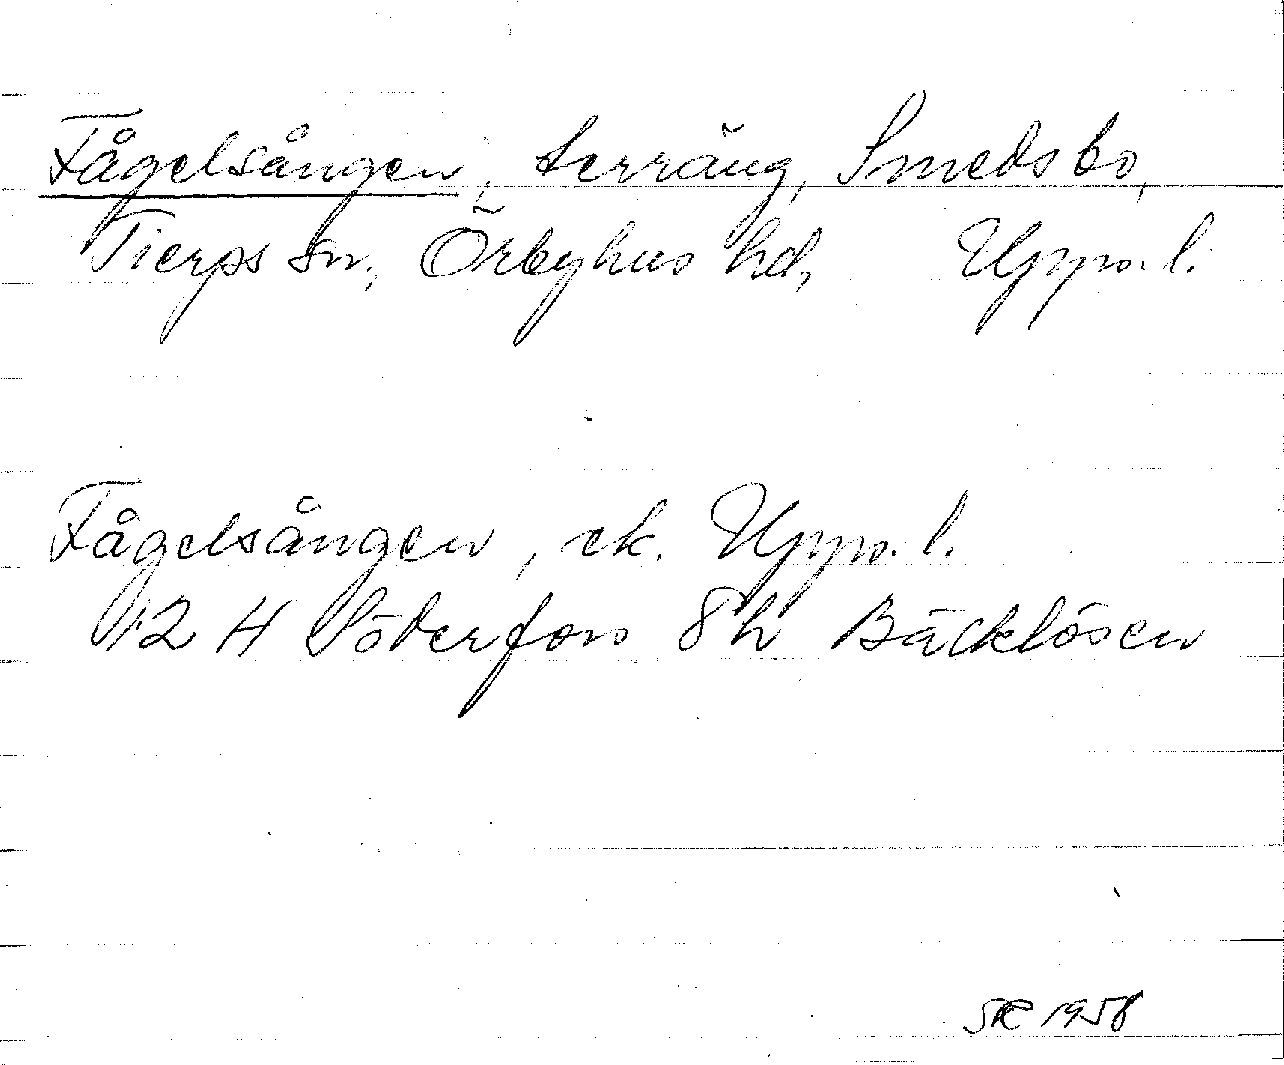 Fågelsången, terräng, Smedsbo,
Tierps sn, Örbyhus hd, Upps. l.
Fågelsången, ek. Upps. l.
12 H Söderfors 8h Bäcklösen
SK 1958